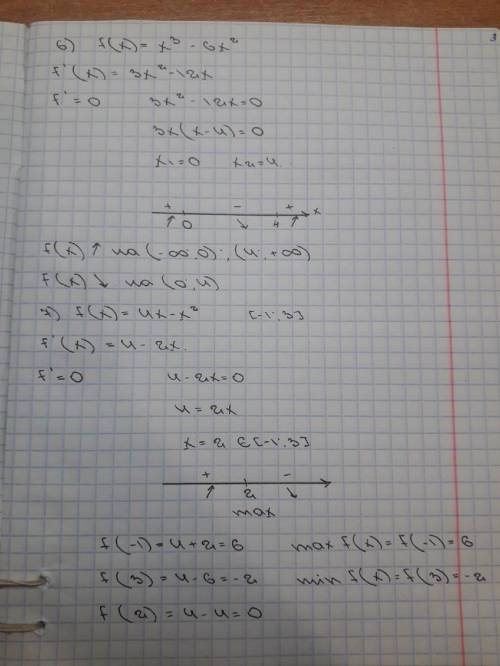 3
6) f(x) = x³ - 6x²
f'(x) = 3x² - 12x
f' = 0 3x² - 12x = 0
3x(x - 4) = 0
x₁ = 0 x₂ = 4.
+ - +
↗ 0 ↘ 4 ↗ x
f(x) ↑ на (-∞; 0); (4; +∞)
f(x) ↘ на (0; 4)
7) f(x) = 4x - x² [-1; 3]
f'(x) = 4 - 2x.
f' = 0 4 - 2x = 0
4 = 2x
x = 2 ∈ [-1; 3]
+ -
↗ 2 ↘
max
f(-1) = 4 + 2 = 6 max f(x) = f(-1) = 6
f(3) = 4 - 6 = -2 min f(x) = f(3) = -2
f(2) = 4 - 4 = 0